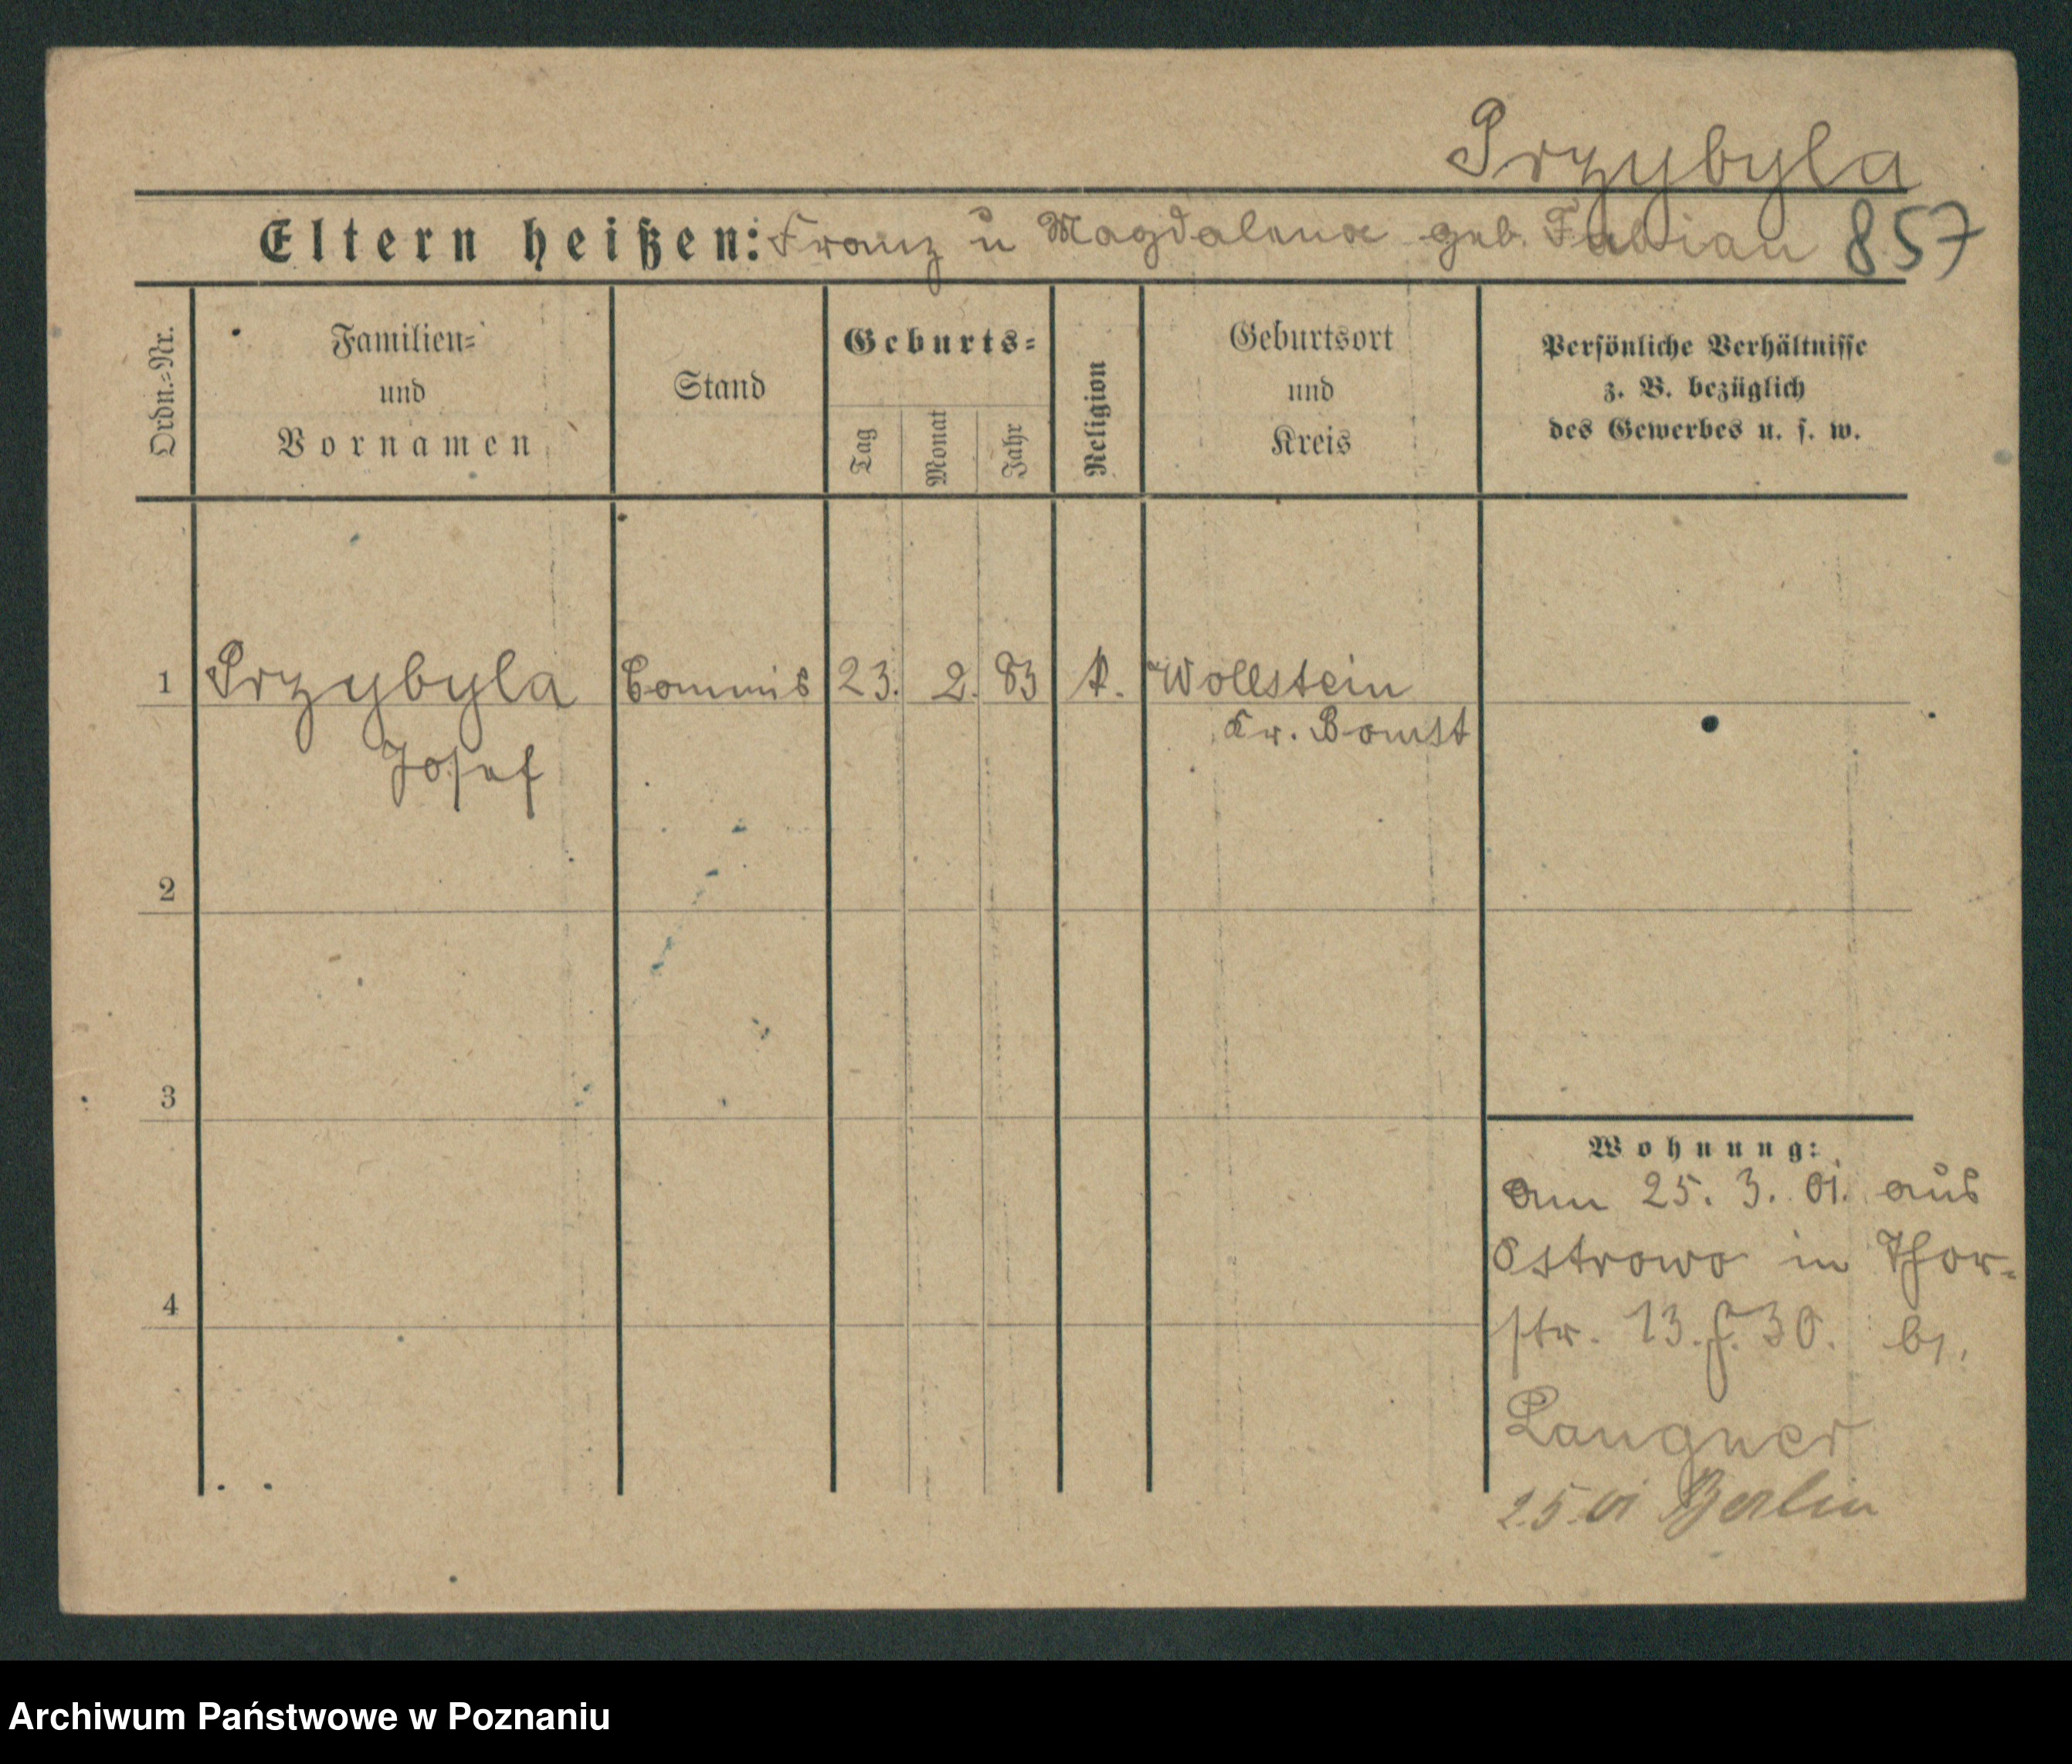 Przybyla
Eltern heißen: Franz u Magdalena geb. Fabian 857
Ordn.=Nr.
Familien=
und
Vornamen
Stand
Geburts=
Tag
Monat
Jahr
Religion
Geburtsort
und
Kreis
Persönliche Verhältnisse
z. B. bezüglich
des Gewerbes u. s. w.
1 Przybyla Commis 23. 2. 83 k. Wollstein
Kr. Bomst
Josef
2
3
4
Wohnung:
am 25. 3. 01. aus
Ostrowo in Thor-
str. 13. f. 30. b.
Langner
2.5.01 Berlin
Archiwum Państwowe w Poznaniu